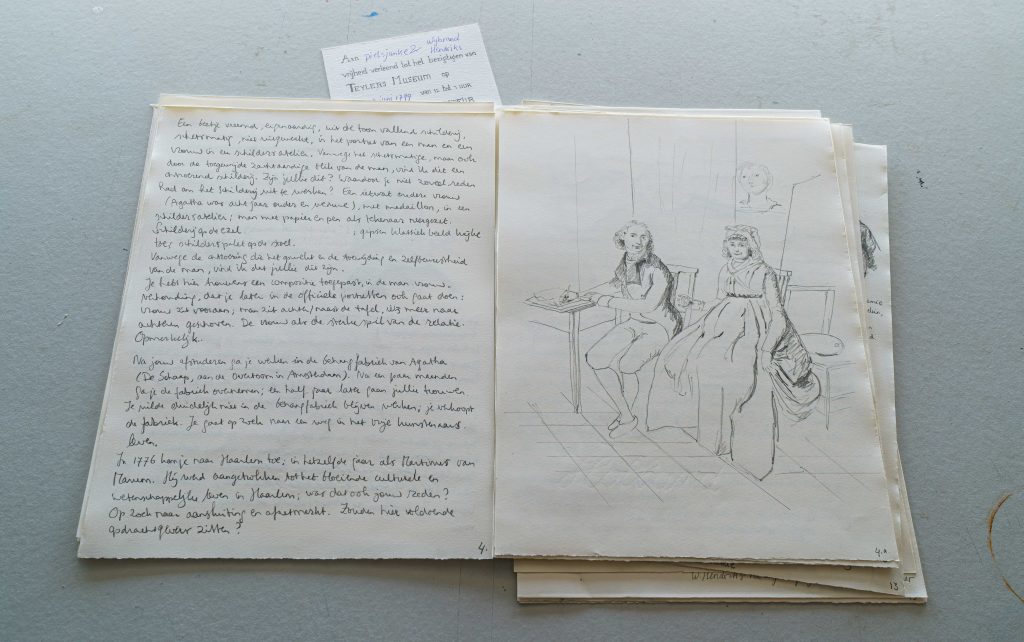 Aan pietsjanke 2 Wybrand Hendriks
vrijheid verleend tot het bezigtigen van
TEYLERS MUSEUM op
juni 1799 van 12 tot 1 uur
Een beetje vreemd, eigenaardig, uit de toon vallend schilderij,
schetsmatig, niet uitgewerkt, in het portret van een man en een
vrouw in een schildersatelier. Vanwege het schetsmatige, maar ook
door de toegewijde zachtaardige blik van de man, vind ik dit een
ontroerend schilderij. Zijn jullie dit? Waardoor je niet zoveel reden
had om het schilderij uit te werken? Een ietwat oudere vrouw
(Agatha was acht jaar ouder en weduwe), met medaillon, in een
schildersatelier; man met papier en pen als tekenaar neergezet.
Schilderij op de ezel ; gipsen klassiek beeld kijkt
toe; schilderspalet op de stoel.
Vanwege de ontroering die het opwekt en de toewijding en zelfbewustheid
van de man, vind ik dat jullie dit zijn.
Je hebt hier trouwens een compositie toegepast, in de man-vrouw-
verhouding, dat je later in de officiële portretten ook gaat doen:
vrouw zit vooraan; man zit achter/naast de tafel, iets meer naar
achteren geschoven. De vrouw als de sterke spil van de relatie.
Opmerkelijk.
Na jouw afstuderen ga je werken in de behangfabriek van Agatha
(De Schaap, aan de Overtoom in Amsterdam). Na een paar maanden
ga je de fabriek overnemen; een half jaar later gaan jullie trouwen.
Je wilde duidelijk niet in de behangfabriek blijven werken; je verkoopt
de fabriek. Je gaat op zoek naar een weg in het vrije kunstenaars
leven.
In 1776 kom je naar Haarlem toe, in hetzelfde jaar als Martinus van
Marum. Hij werd aangetrokken tot het bloeiende culturele en
wetenschappelijke leven in Haarlem; was dat ook jouw reden?
Op zoek naar aansluiting en afzetmarkt. Zouden hier voldoende
opdrachtgevers zitten?
4.
4.a
W. Hendriks
13